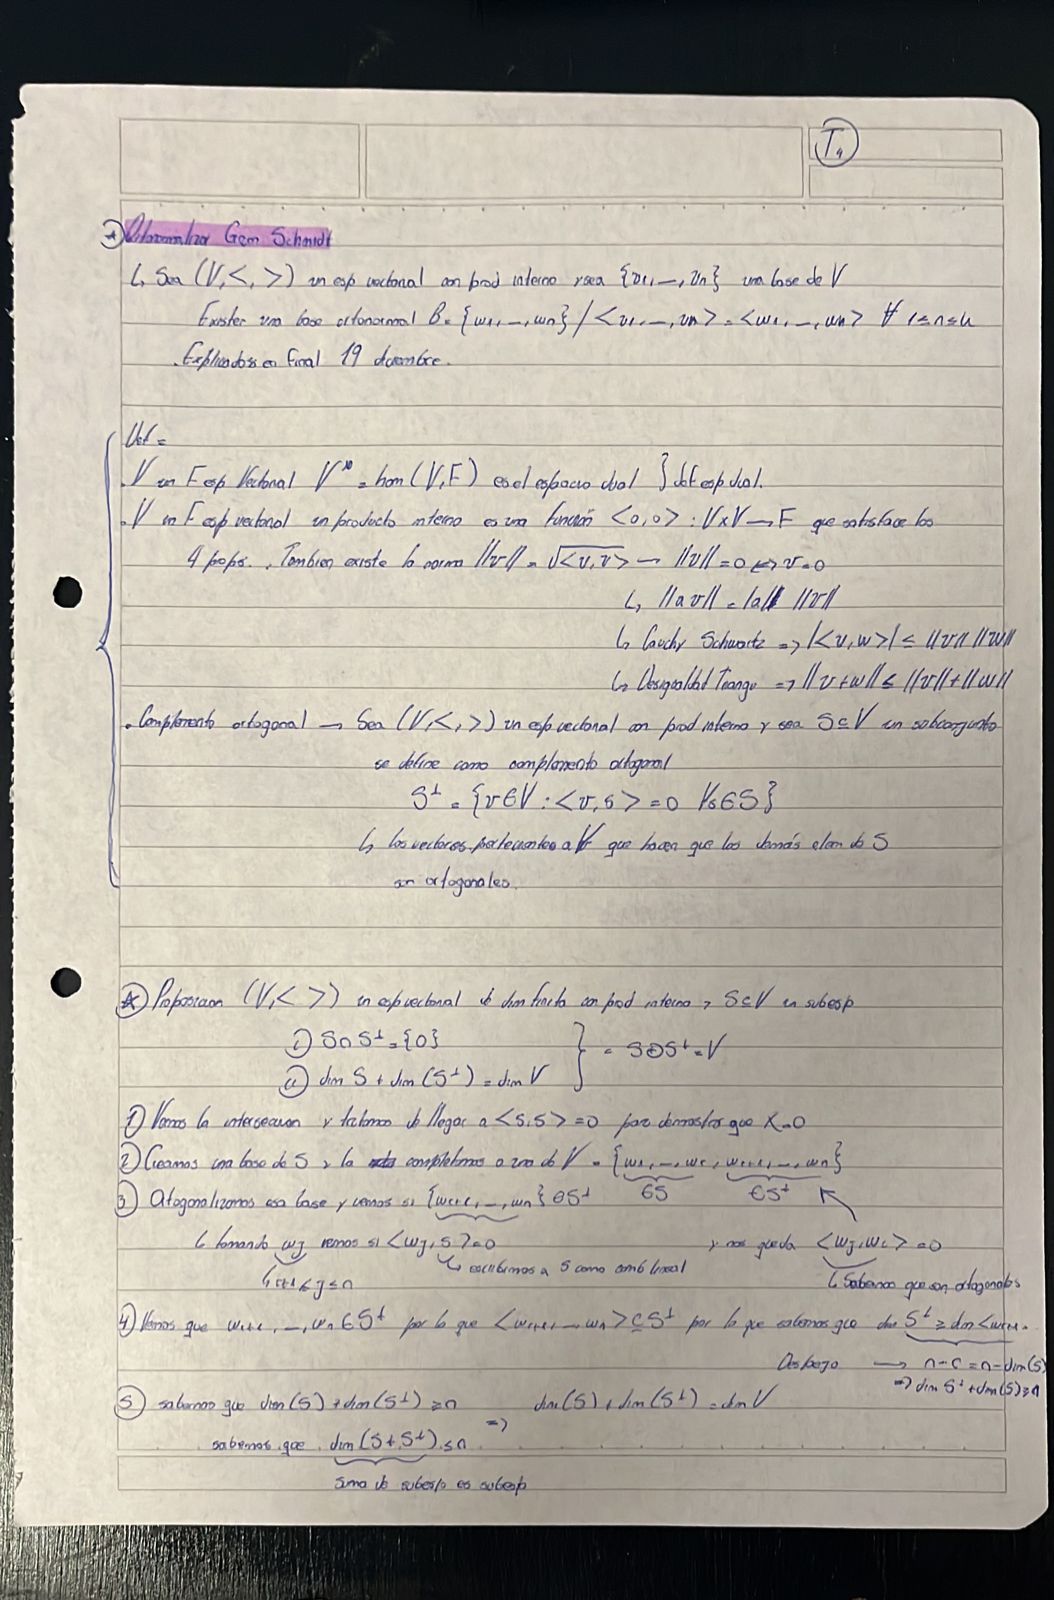 T4
* Ortonormalizar Gram Schmidt
↳ Sea (V,<,>) un esp vectorial con prod interno y sea {v1,—,vn} una base de V
Existen una base ortonormal B={w1,—,wn} / <v1,—,vn> = <w1,—,wn> ∀ 1≤n≤n
. Explicados en Final 19 diciembre.
Def =
. V un F esp Vectorial V* = hom(V,F) es el espacio dual } def esp dual.
. V un F esp vectorial un producto interno es una función <0,0> : V×V → F que satisface las
4 pops. . Tambien existe la norma ||v|| = √<v,v> → ||v|| = 0 ↔ v=0
↳ ||av|| = |a| ||v||
↳ Cauchy Schwartz => |<v,w>| ≤ ||v|| ||w||
↳ Desigualdad Triang => ||v+w|| ≤ ||v||+||w||
. Complemento ortogonal → Sea (V,<,>) un esp vectorial con prod interno y sea S⊆V un subconjunto
se define como complemento ortogonal
S⊥ = {v∈V : <v,s> = 0 ∀s∈S}
↳ los vectores pertenecientes a V que hacen que los demás elem de S
son ortogonales.
* Proposicion (V,< >) un esp vectorial de dim finita con prod interno y S⊆V un subesp
i) S∩S⊥ = {0}
ii) dim S + dim(S⊥) = dim V } = S⊕S⊥ = V
1) Vemos la interseccion y tratamos de llegar a <s,s> = 0 para demostrar que x=0
2) Creamos una base de S y la completamos a una de V = {w1,—,wr, wr+1,—,wn}
∈S ∈S⊥
3) Ortogonalizamos esa base y vemos si {wr+1,—,wn} ∈ S⊥
↳ tomando wj vemos si <wj,s> = 0 y nos queda <wj,wi> = 0
↳ r+1 ≤ j ≤ n ↳ escribimos a s como comb lineal ↳ Sabemos que son ortogonales
4) Vemos que wr+1,—,wn ∈ S⊥ por lo que <wr+1,—,wn> ⊆ S⊥ por lo que sabemos que dim S⊥ ≥ dim <wr+1..
Despejo → n-r = n-dim(S)
=> dim S⊥+dim(S) ≥ n
5) sabemos que dim(S) + dim(S⊥) ≥ n => dim(S) + dim(S⊥) = dim V
sabemos que dim(S+S⊥) ≤ n
Suma de subesp es subesp